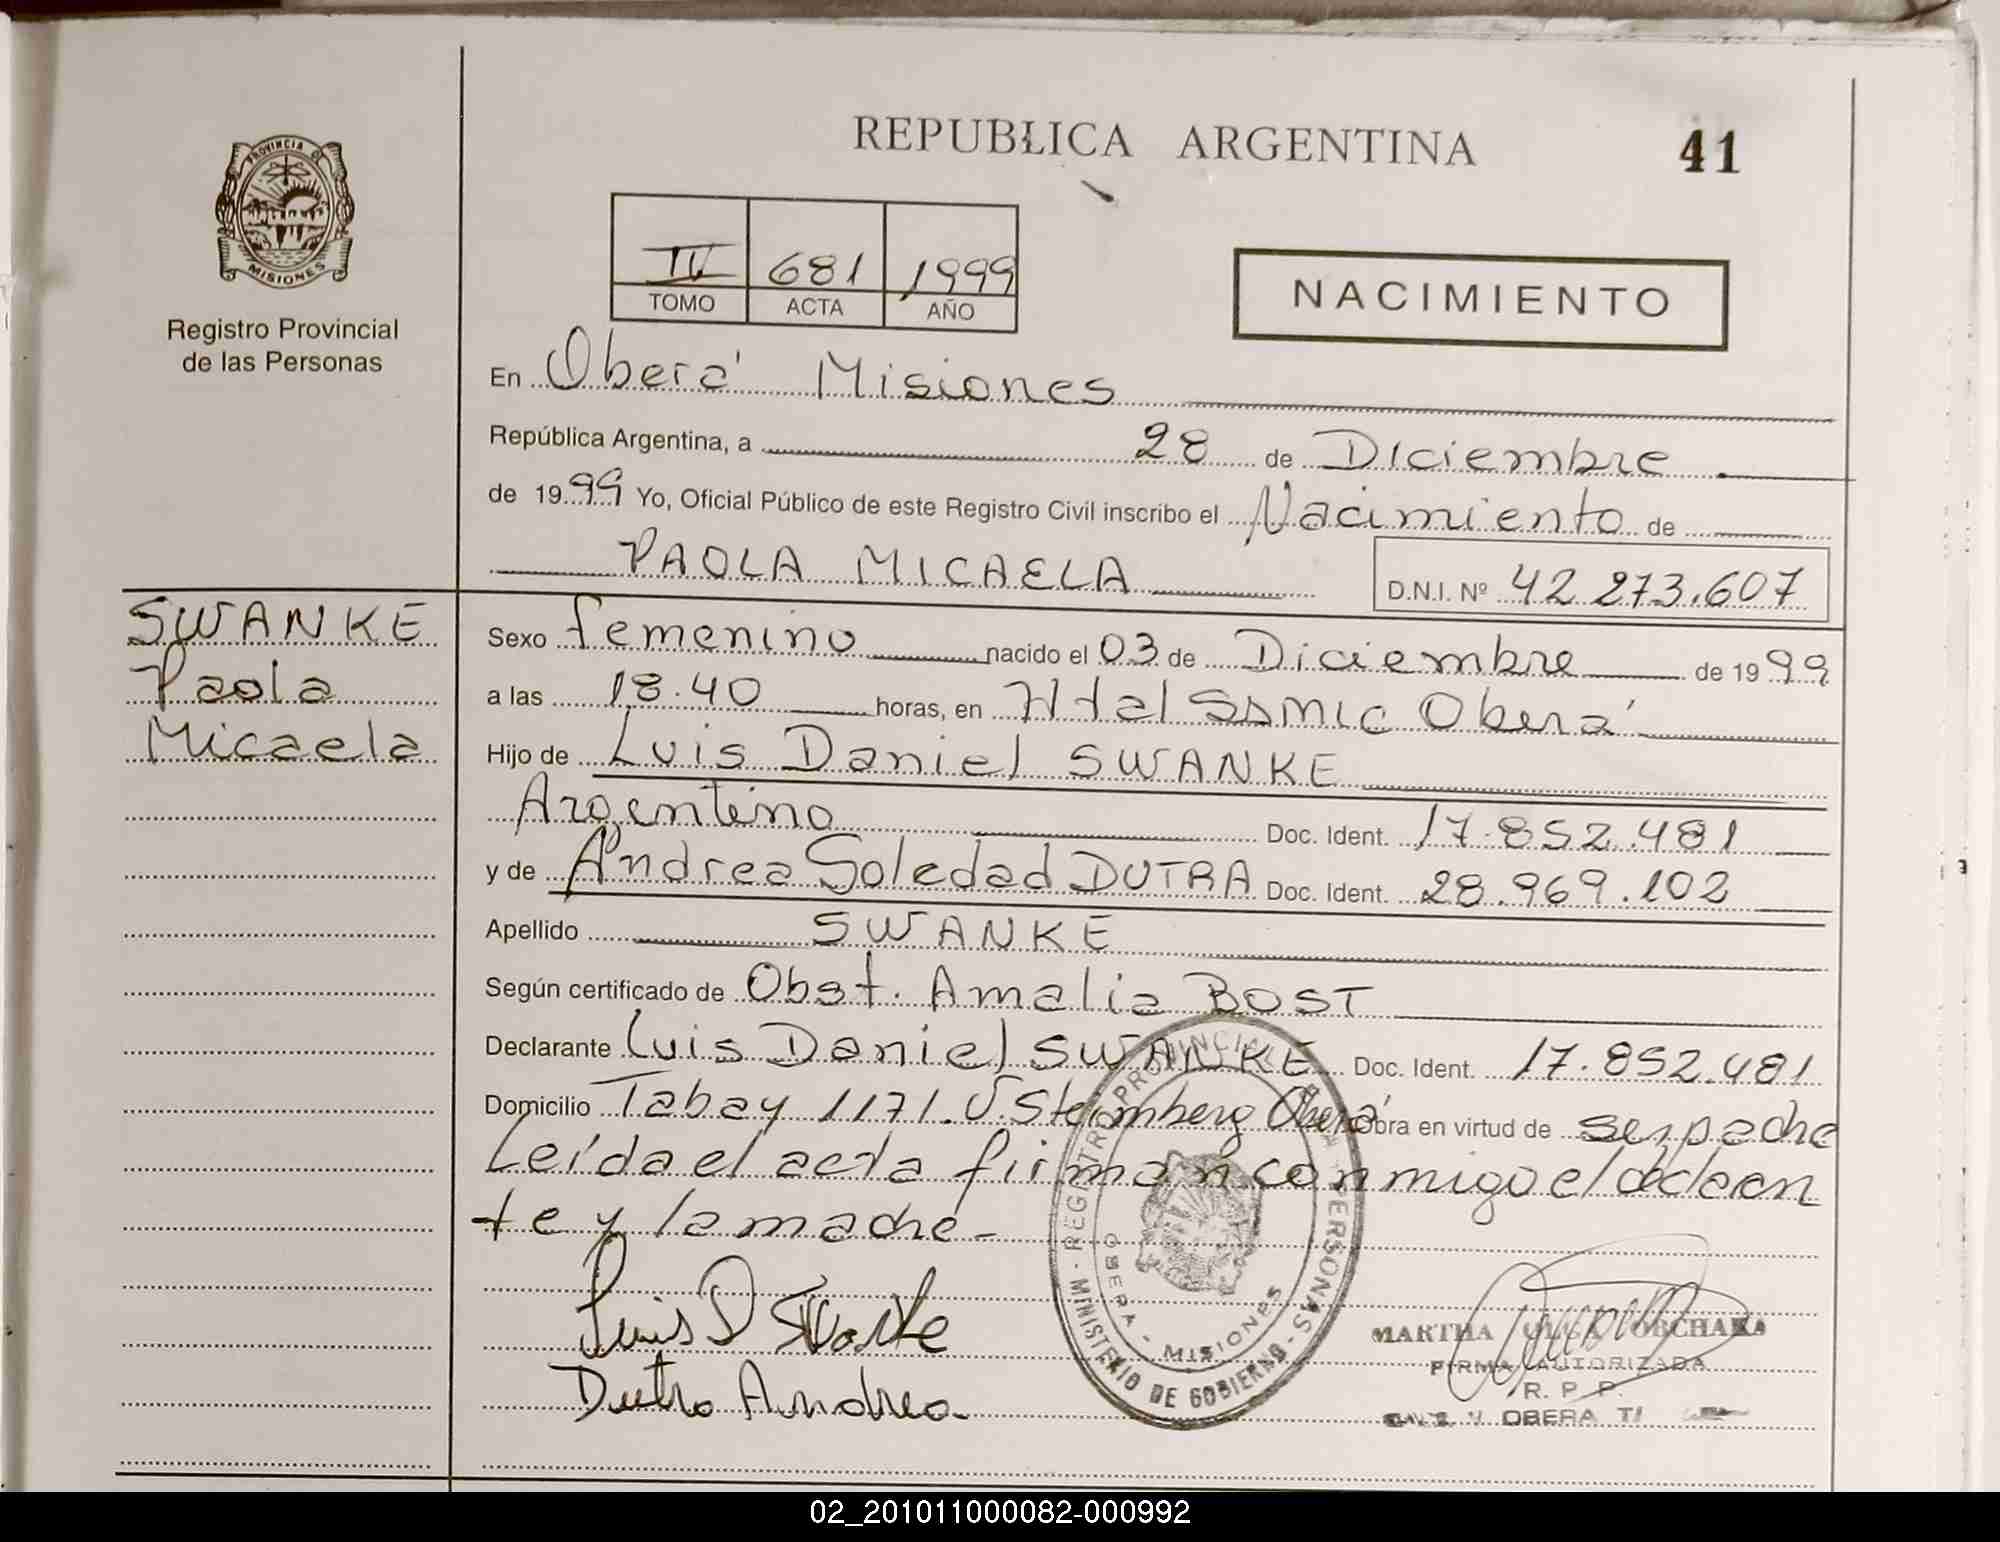 REPUBLICA ARGENTINA
41
PROVINCIA DE
MISIONES
Registro Provincial
de las Personas
IV 681 1999
TOMO ACTA AÑO
NACIMIENTO
En Oberá Misiones
República Argentina, a 28 de Diciembre
de 1999 Yo, Oficial Público de este Registro Civil inscribo el Nacimiento de
PAOLA MICAELA D.N.I. Nº 42 273.607
SWANKE
Paola
Micaela
Sexo femenino nacido el 03 de Diciembre de 1999
a las 18.40 horas, en Htal SAMIC Oberá
Hijo de Luis Daniel SWANKE
Argentino Doc. Ident. 17.852.481
y de Andrea Soledad DUTRA Doc. Ident. 28.969.102
Apellido SWANKE
Según certificado de Obst. Amalia BOST
Declarante Luis Daniel SWANKE Doc. Ident. 17.852.481
Domicilio Tabay 1171. V. Stemberg Oberá Obra en virtud de ser padre
Leída el acta firman conmigo el declaran
te y la madre-
Luis D Swanke
Dutra Andrea
REGISTRO PROVINCIAL PERSONAS
MINISTERIO DE GOBIERNO
OBERA - MISIONES
MARTHA
FIRMA AUTORIZADA
R. P. P.
OBERA
02_201011000082-000992